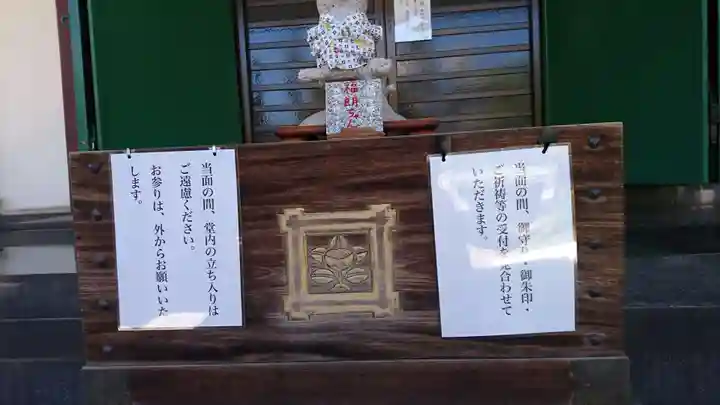 福朗ちゃん
当面の間、御守り・御朱印・
ご祈祷等の受付を見合わせて
いただきます。
当面の間、堂内の立ち入りは
ご遠慮ください。
お参りは、外からお願いいた
します。